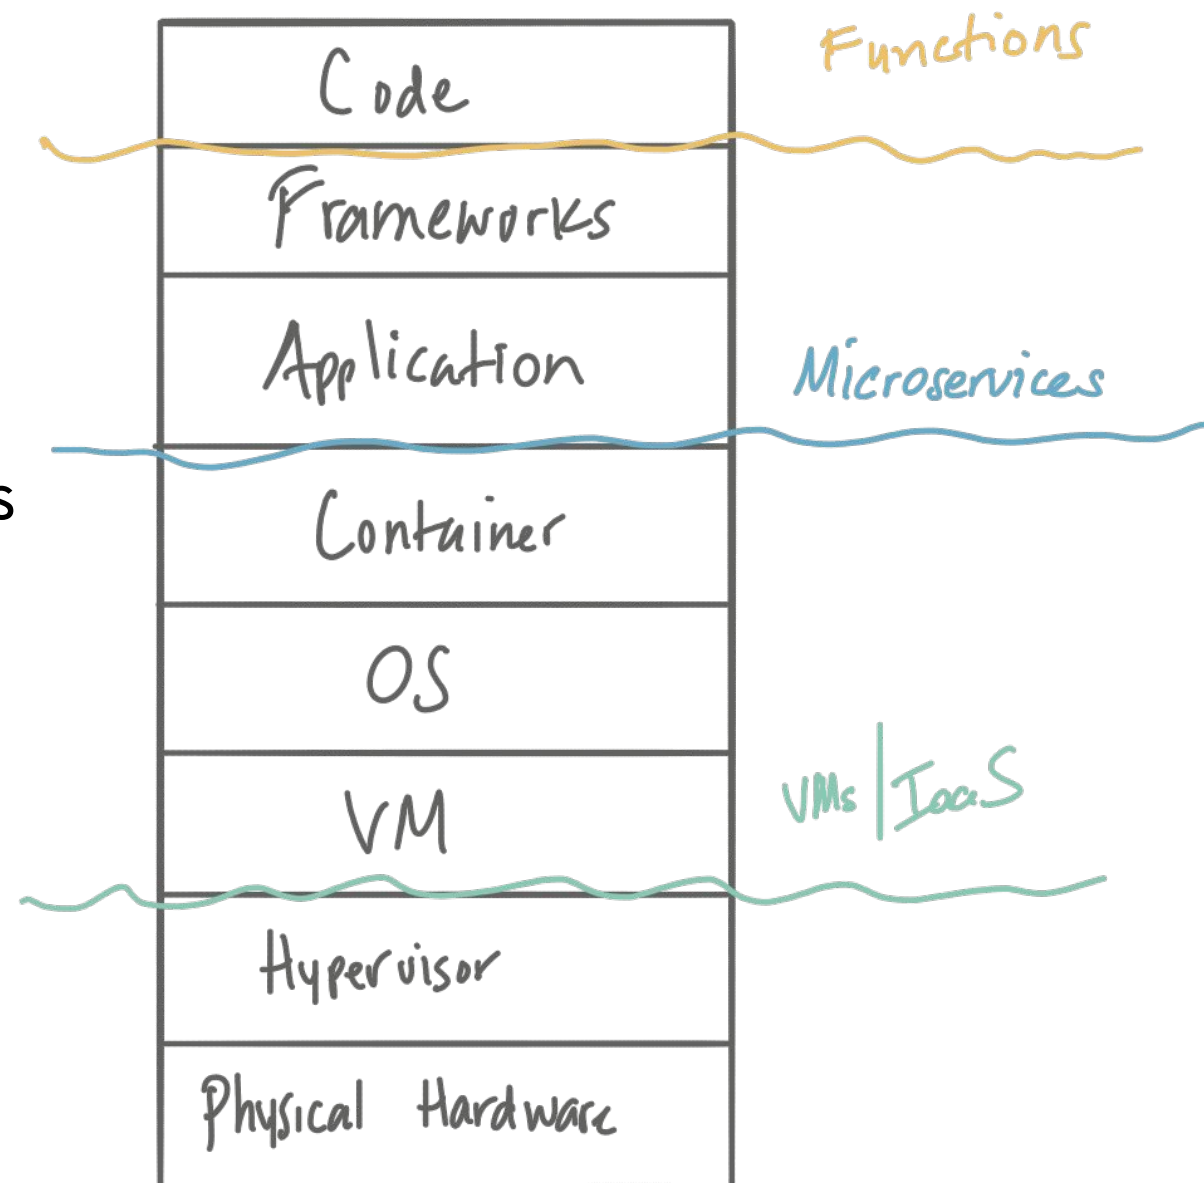 Code
Functions
Frameworks
Application
Microservices
s
Container
OS
VM
VMs | IaaS
Hypervisor
Physical Hardware